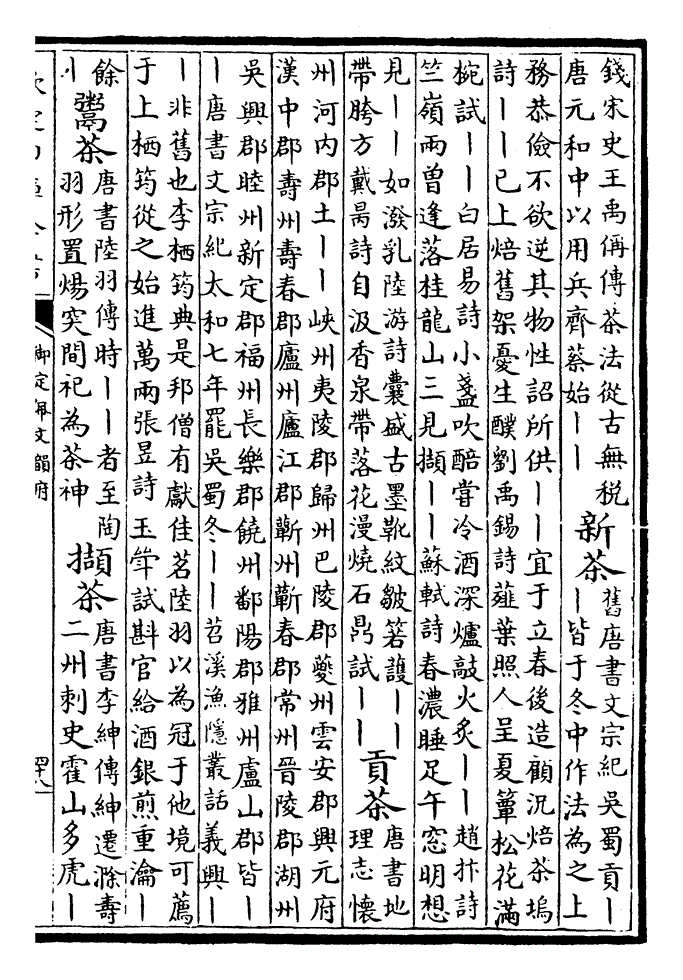 錢宋史王禹偁傳茶法從古無税
唐元和中以用兵齊蔡始｜｜
新茶
舊唐書文宗紀吳蜀貢｜
｜皆于冬中作法為之上
務恭儉不欲逆其物性詔所供｜｜宜于立春後造顧況焙茶塢
詩｜｜已上焙舊架憂生醭劉禹錫詩薤葉照人呈夏簟松花滿
椀試｜｜白居易詩小盞吹醅嘗冷酒深爐敲火炙｜｜趙抃詩
竺嶺兩曾逢落桂龍山三見擷｜｜蘇軾詩春濃睡足午窓明想
見｜｜如潑乳陸游詩囊盛古墨靴紋皺箬護｜｜
帶胯方戴昺詩自汲香泉帶落花漫燒石鼎試｜｜
貢茶
唐書地
理志懷
州河内郡土｜｜峽州夷陵郡歸州巴陵郡夔州雲安郡興元府
漢中郡壽州壽春郡廬州廬江郡蘄州蘄春郡常州晉陵郡湖州
吳興郡睦州新定郡福州長樂郡饒州鄱陽郡雅州盧山郡皆｜
｜唐書文宗紀太和七年罷吳蜀冬｜｜苕溪漁隱叢話義興｜
｜非舊也李栖筠典是邦僧有獻佳茗陸羽以為冠于他境可薦
于上栖筠從之始進萬兩張昱詩玉斝試斟官給酒銀煎重瀹｜
餘
｜
鬻茶
唐書陸羽傳時｜｜者至陶
羽形置煬突間祀為茶神
擷茶
唐書李紳傳紳遷滁壽
二州刺史霍山多虎｜
御定佩文韻府